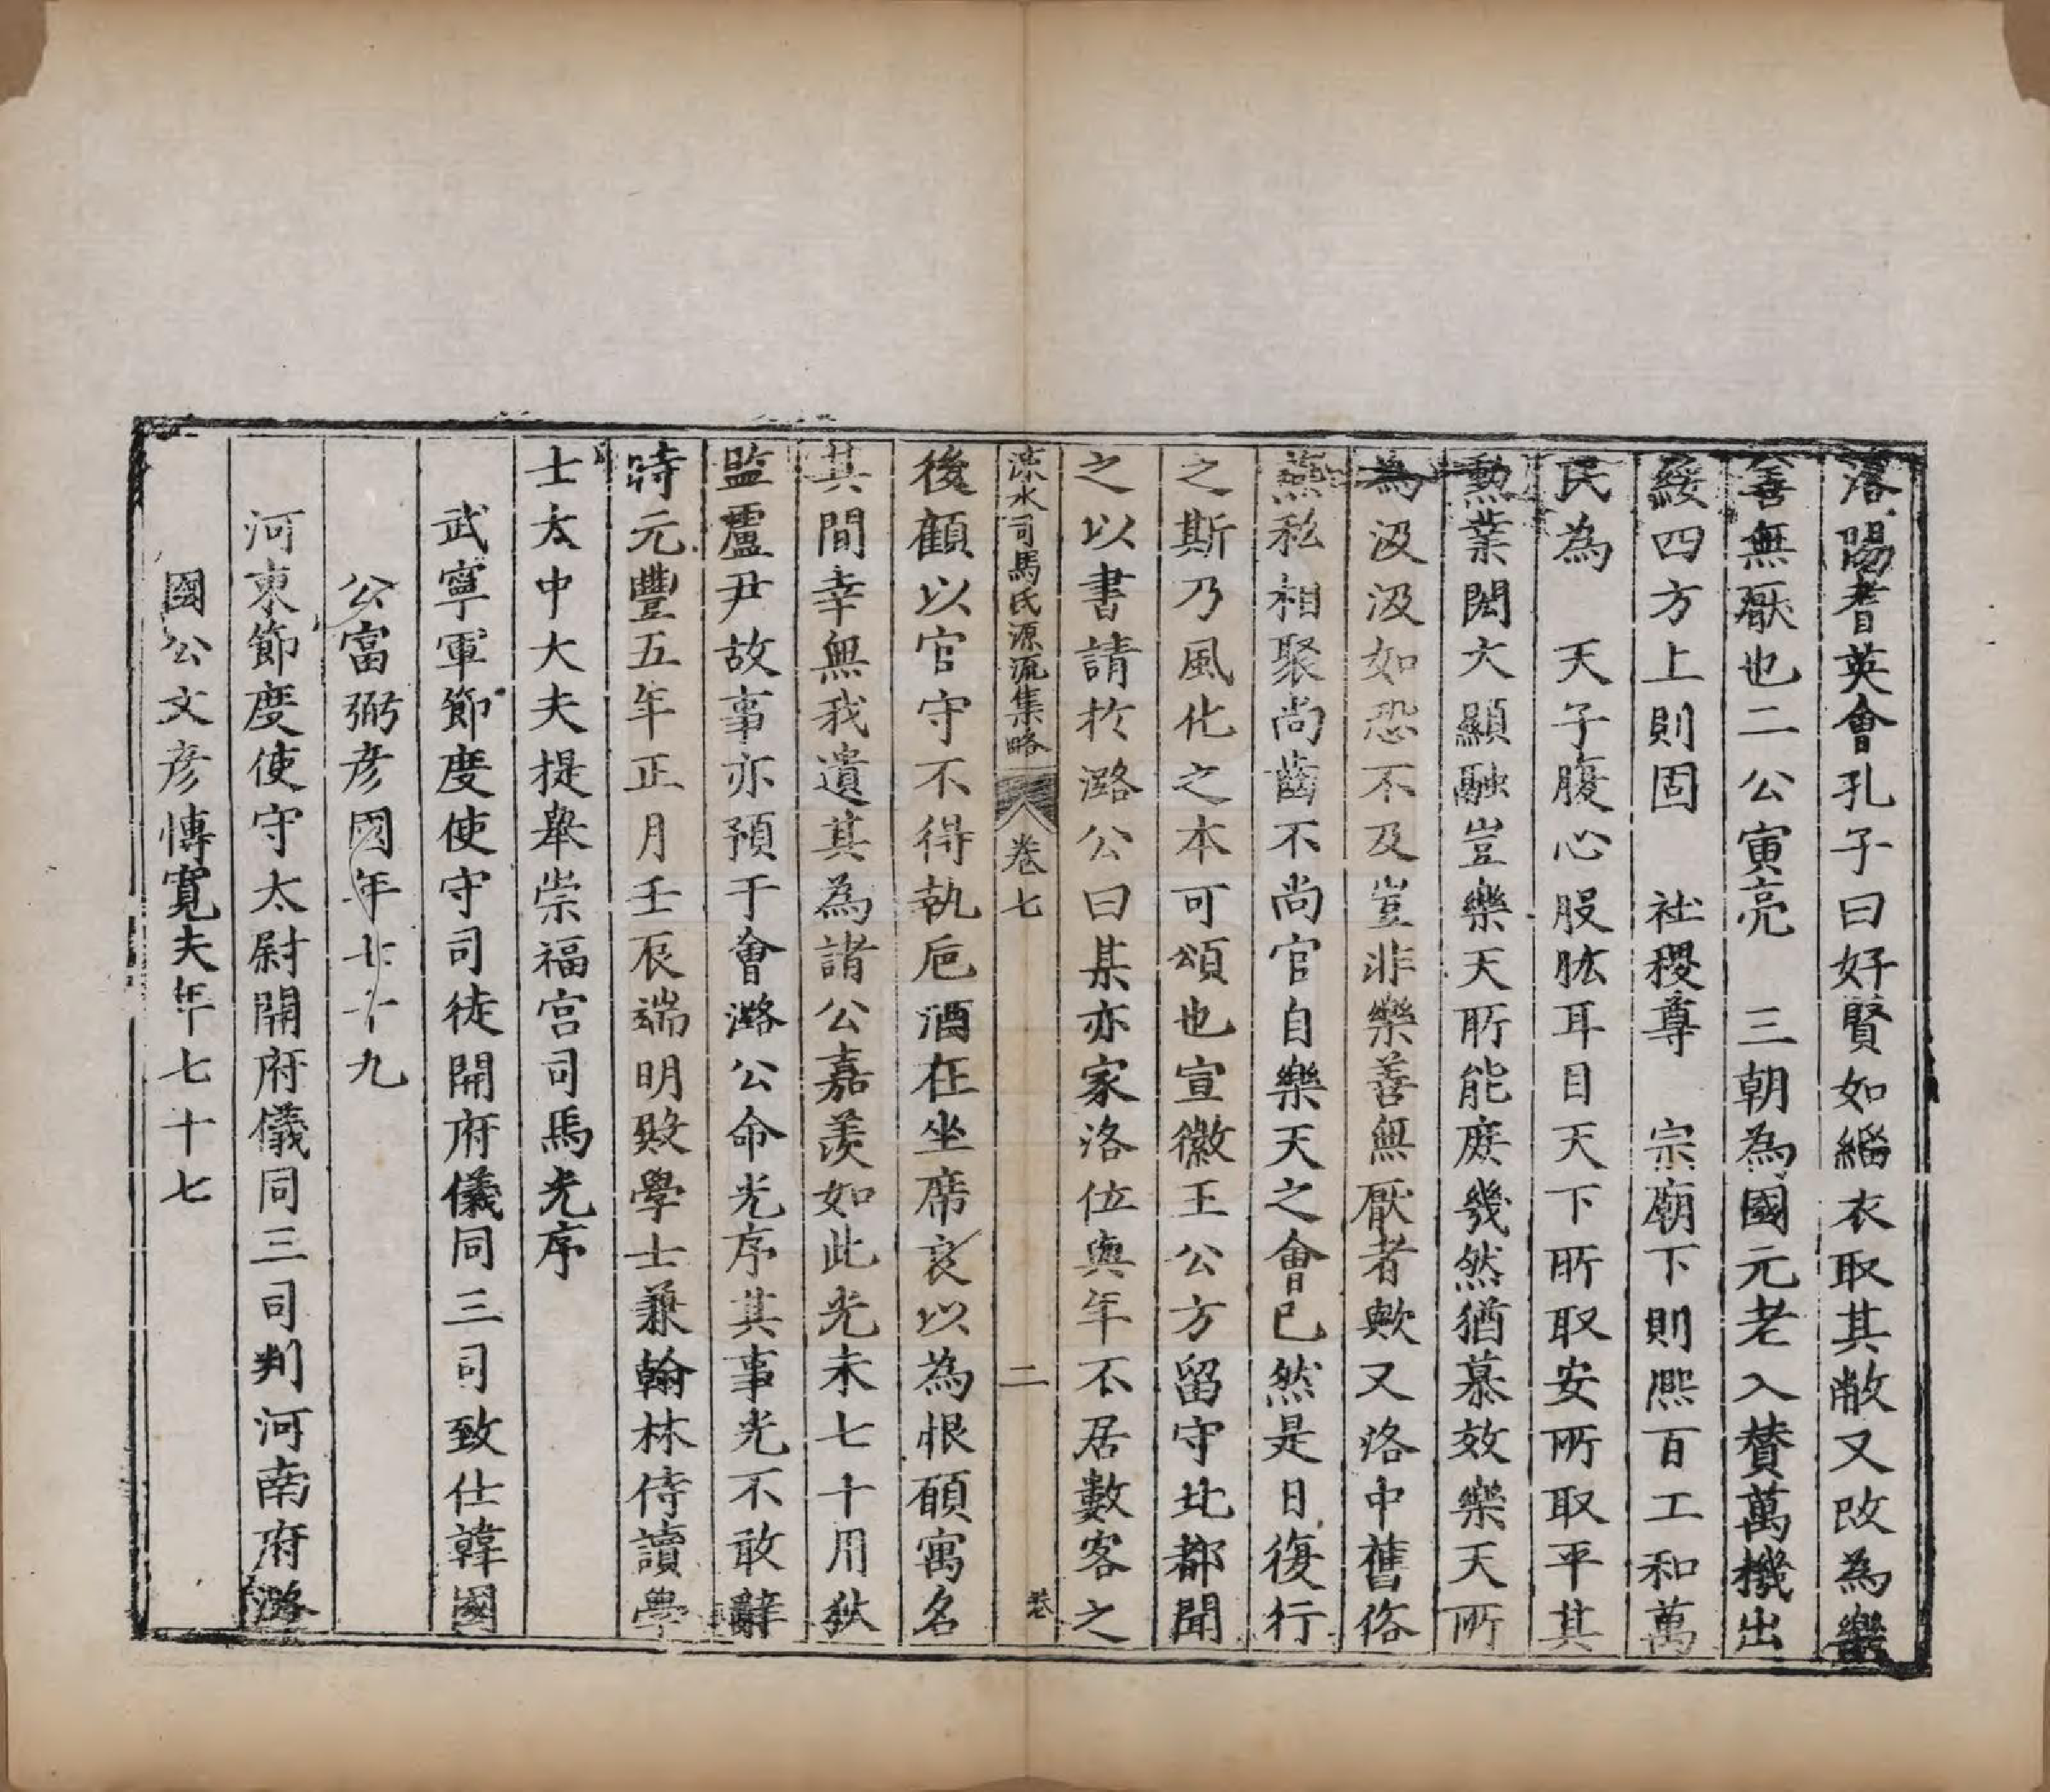 洛陽耆英會孔子曰好賢如緇衣取其敝又改為樂
善無厭也二公寅亮　三朝為國元老入賛萬機出
綏四方上則固　社稷尊　宗廟下則熈百工和萬
民為　天子腹心股肱耳目天下所取安所取平其
勲業閎大顯融豈樂天所能庶幾然猶慕效樂天所
為汲汲如恐不及豈非樂善無厭者歟又洛中舊俗
燕私相聚尚齒不尚官自樂天之會已然是日復行
之斯乃風化之本可頌也宣徽王公方留守北都聞
之以書請於潞公曰某亦家洛位與年不居數客之
涑水司馬氏源流集略　卷七　二　卷
後顧以官守不得執巵酒在坐席良以為恨願寓名
其間幸無我遺其為諸公嘉羨如此光未七十用狄
監盧尹故事亦預于會潞公命光序其事光不敢辭
時元豐五年正月壬辰端明殿學士兼翰林侍讀學
士太中大夫提舉崇福宮司馬光序
武寧軍節度使守司徒開府儀同三司致仕韓國
公富弼彥國年七十九
河東節度使守太尉開府儀同三司判河南府潞
國公文彥愽寬夫年七十七